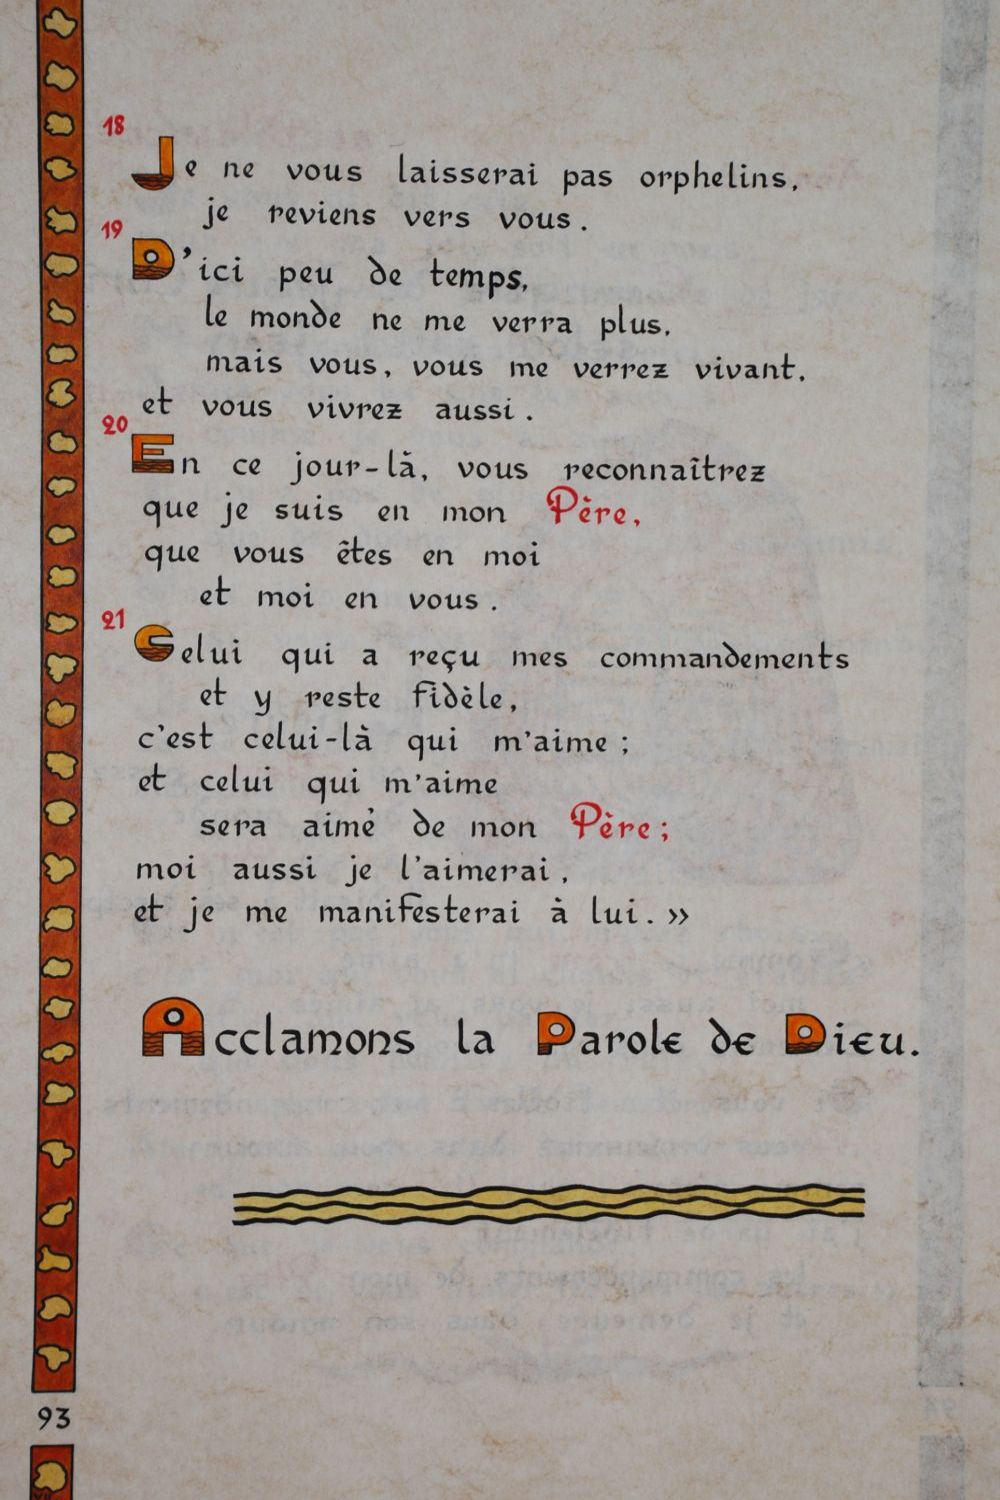 18
Je ne vous laisserai pas orphelins,
je reviens vers vous.
19
D'ici peu de temps,
le monde ne me verra plus,
mais vous, vous me verrez vivant,
et vous vivrez aussi.
20
En ce jour-là, vous reconnaîtrez
que je suis en mon Père,
que vous êtes en moi
et moi en vous.
21
Celui qui a reçu mes commandements
et y reste fidèle,
c'est celui-là qui m'aime ;
et celui qui m'aime
sera aimé de mon Père ;
moi aussi je l'aimerai,
et je me manifesterai à lui. »
Acclamons la Parole de Dieu.
93